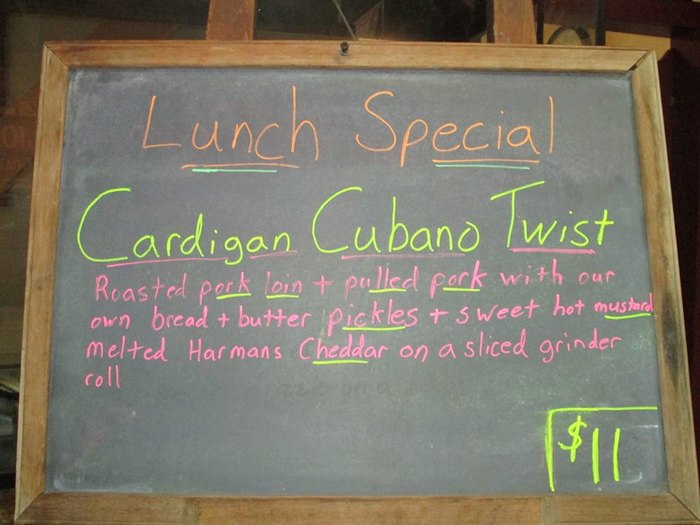 Lunch Special
Cardigan Cubano Twist
Roasted pork loin + pulled pork with our
own bread + butter pickles + sweet hot mustard
melted Harmans Cheddar on a sliced grinder
roll
$11